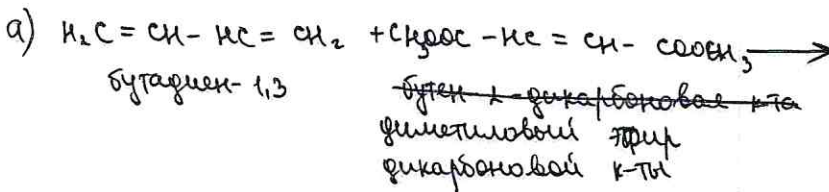 а) H₂C = CH - HC = CH₂ + CH₃OOC - HC = CH - COOCH₃ ⟶
бутадиен-1,3
бутен-2-дикарбоновая к-та
диметиловый эфир
дикарбоновой к-ты